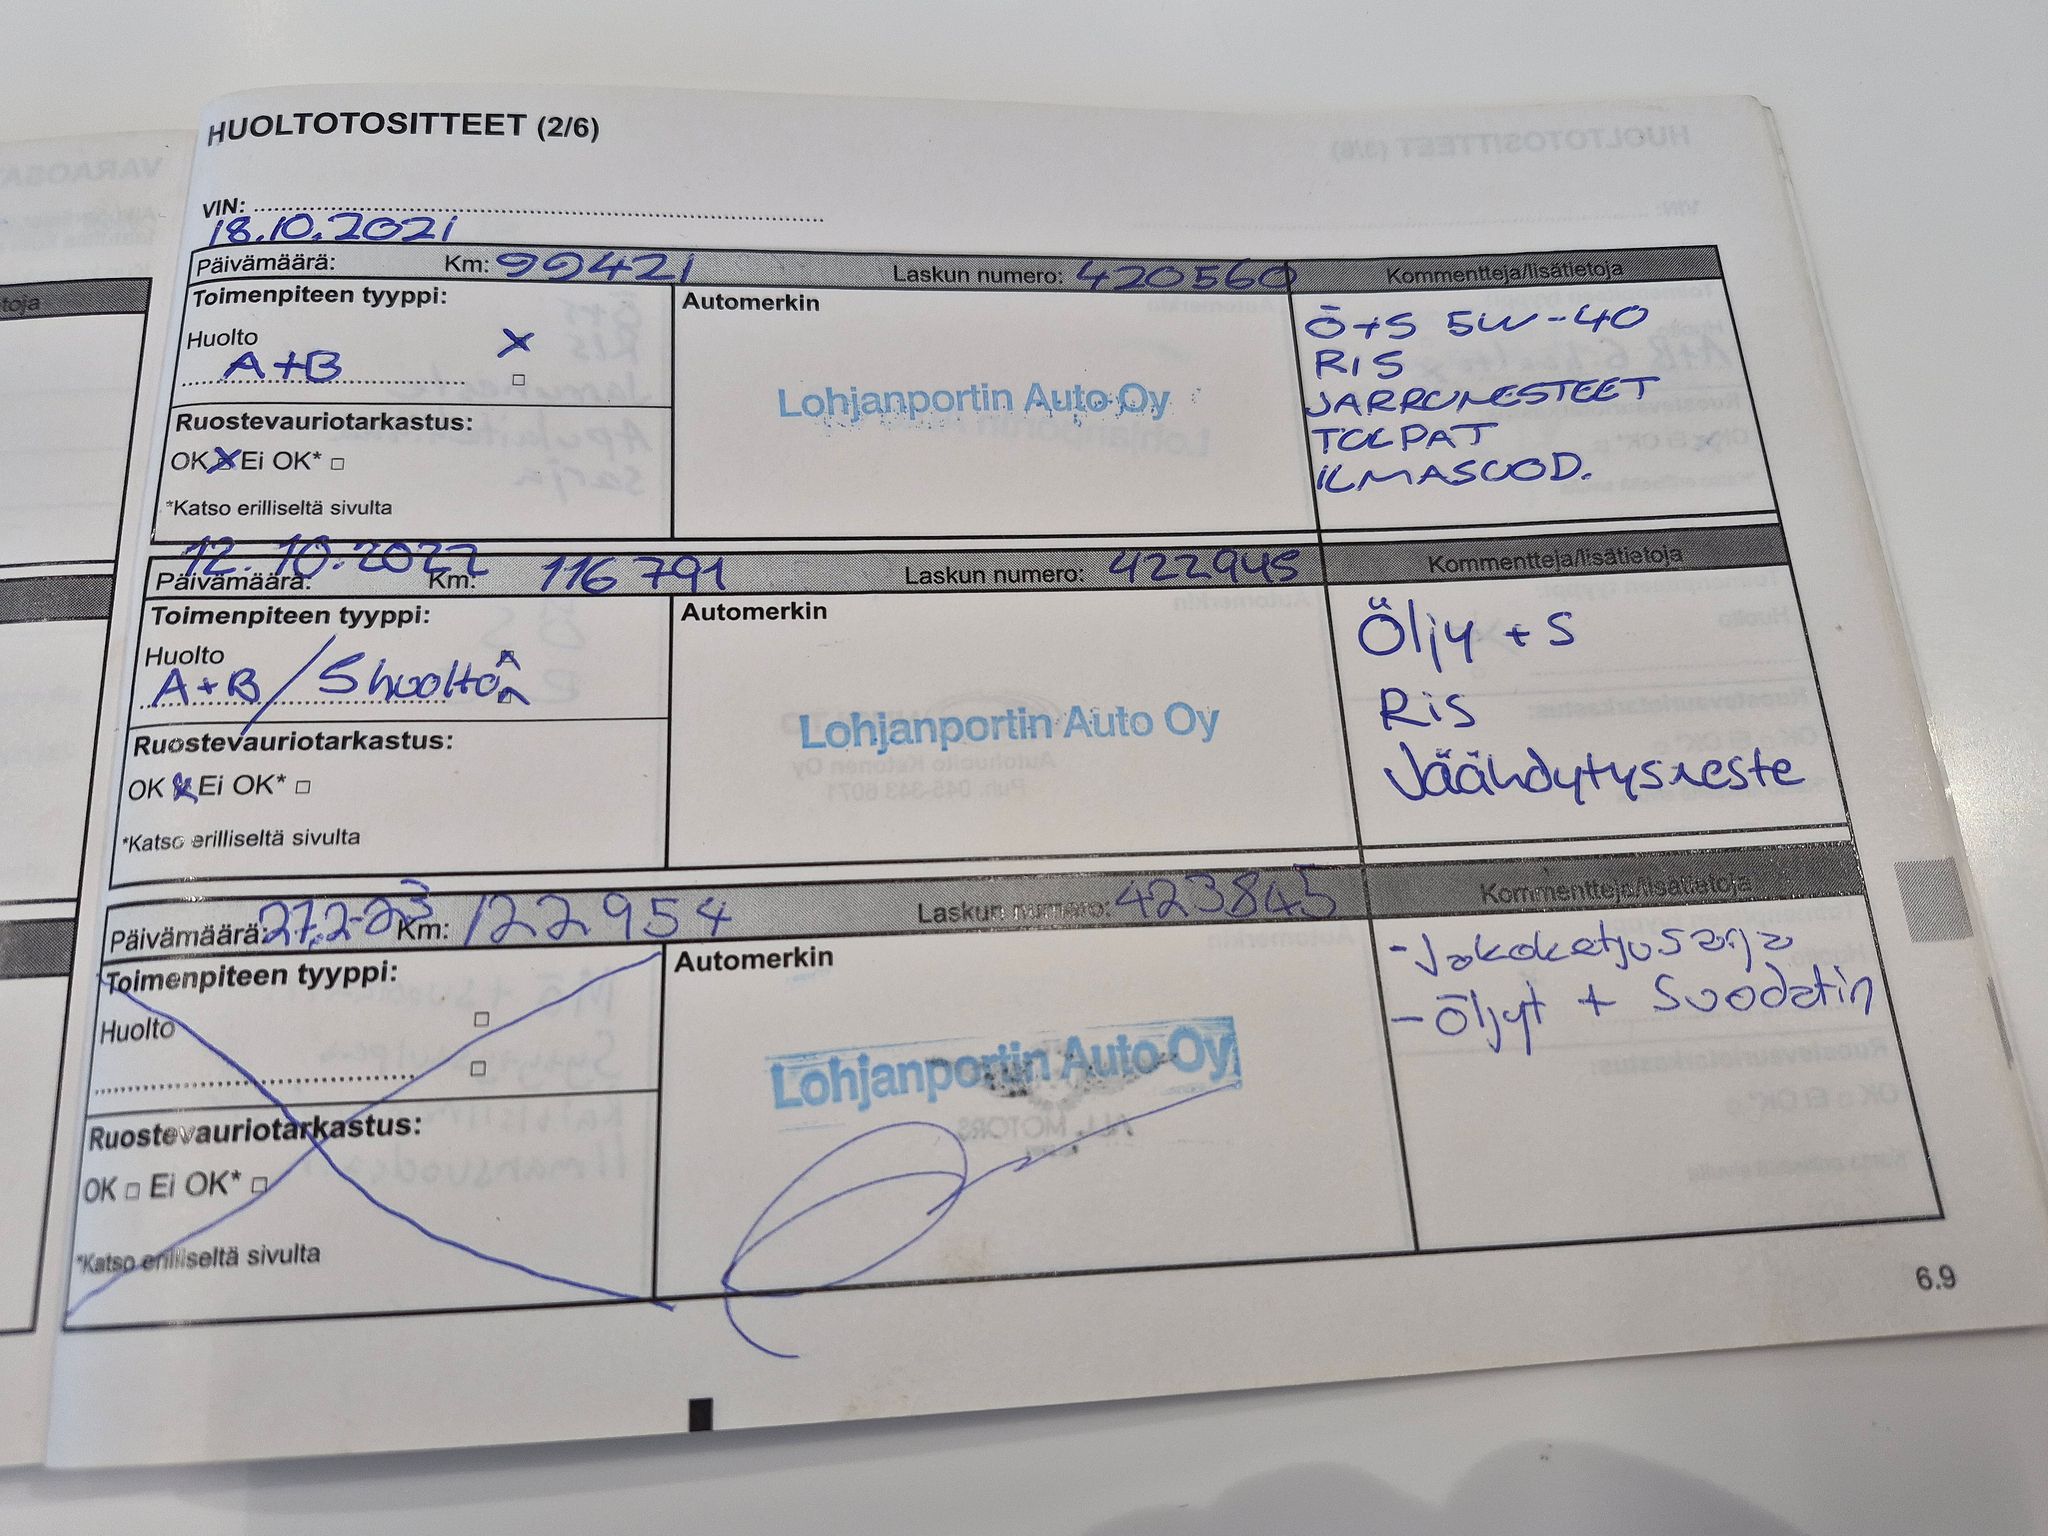 HUOLTOTOSITTEET (2/6)
VIN:
18.10.2021
Päivämäärä: Km: 99421 Laskun numero: 420560 Kommentteja/lisätietoja
Toimenpiteen tyyppi:
Huolto X
A+B
Ruostevauriotarkastus:
OK X Ei OK* □
*Katso erilliseltä sivulta
Automerkin
Lohjanportin Auto Oy
Ö+S 5W-40
RIS
JARRUNESTEET
TULPAT
ILMASUOD.
12.10.2022
Päivämäärä: Km: 116791 Laskun numero: 422945 Kommentteja/lisätietoja
Toimenpiteen tyyppi:
Huolto
A+B / Shuolto
Ruostevauriotarkastus:
OK X Ei OK* □
*Katso erilliseltä sivulta
Automerkin
Lohjanportin Auto Oy
Öljy + S
Ris
Jäähdytysneste
Päivämäärä: 27.2-23 Km: 122954 Laskun numero: 423845 Kommentteja/lisätietoja
Toimenpiteen tyyppi:
Huolto □
□
Ruostevauriotarkastus:
OK □ Ei OK* □
*Katso erilliseltä sivulta
Automerkin
Lohjanportin Auto Oy
- Jakoketjusarja
- Öljyt + Suodatin
6.9